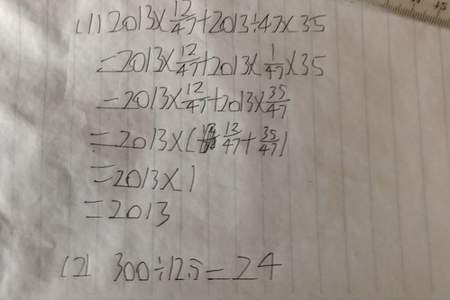 (1) 2013×12/47+2013÷47×35
=2013×12/47+2013×1/47×35
=2013×12/47+2013×35/47
=2013×(12/47+35/47)
=2013×1
=2013
(2) 300÷12.5=24